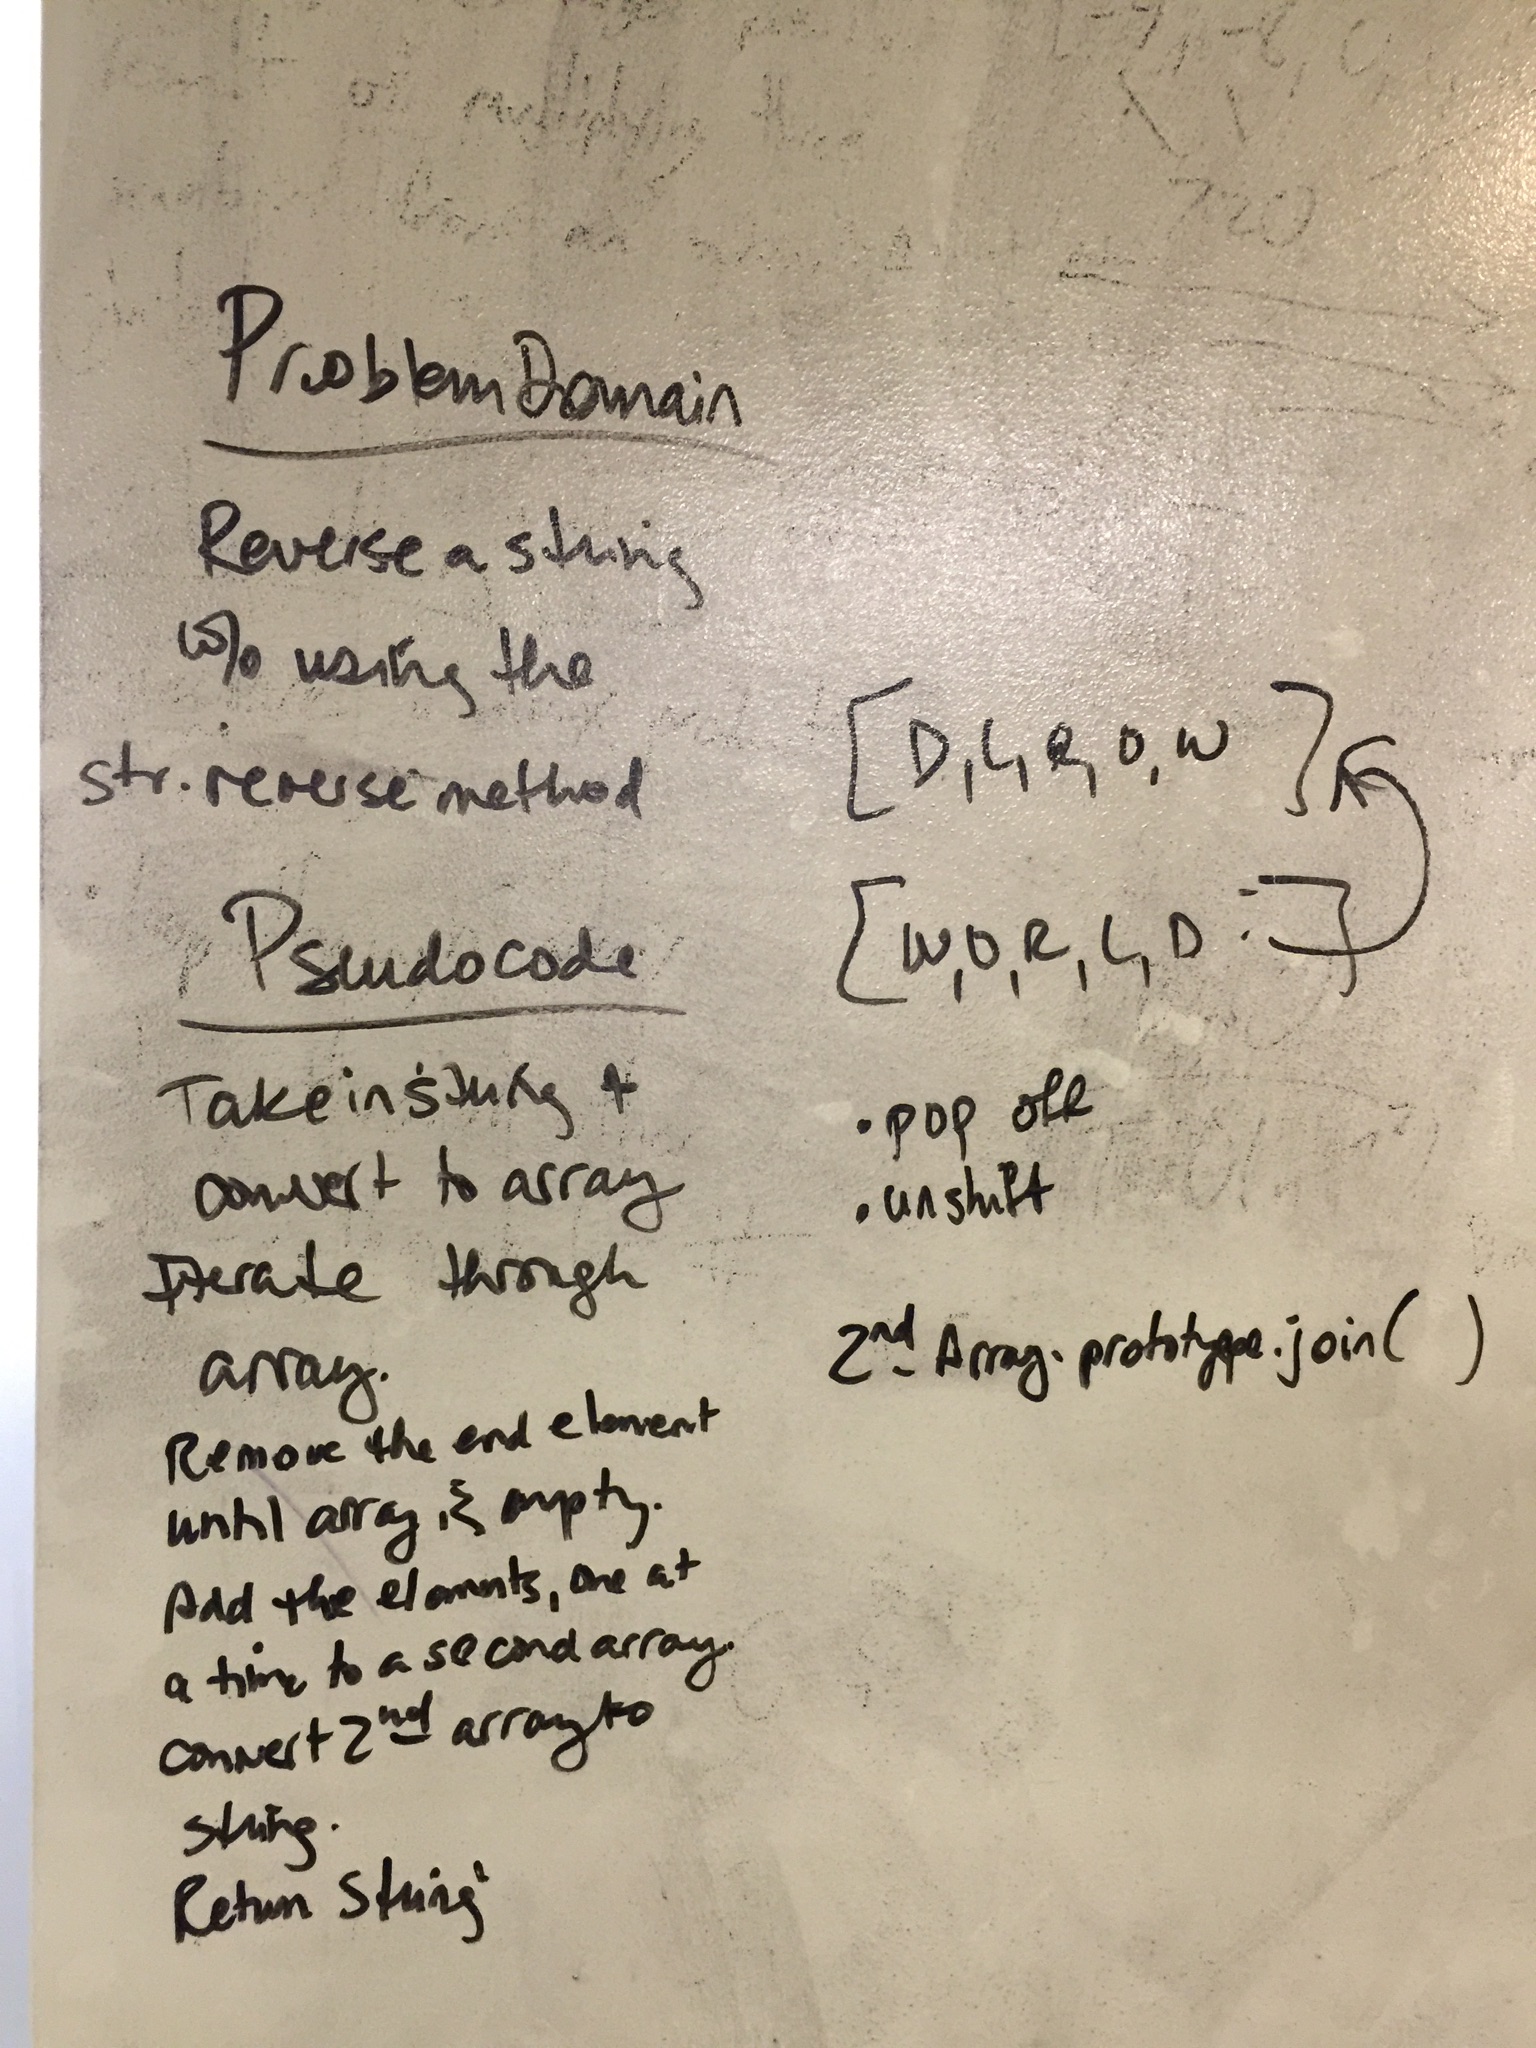 Problem Domain
Reverse a string
w/o using the
str.reverse method
Pseudocode
Take in string +
convert to array
Iterate through
array.
Remove the end element
until array is empty.
Add the elements, one at
a time to a second array.
convert 2nd array to
string.
Return String
[D, L, R, O, W]
[W, O, R, L, D]
• pop off
• unshift
2nd Array.prototype.join( )
of multiplying
an
720